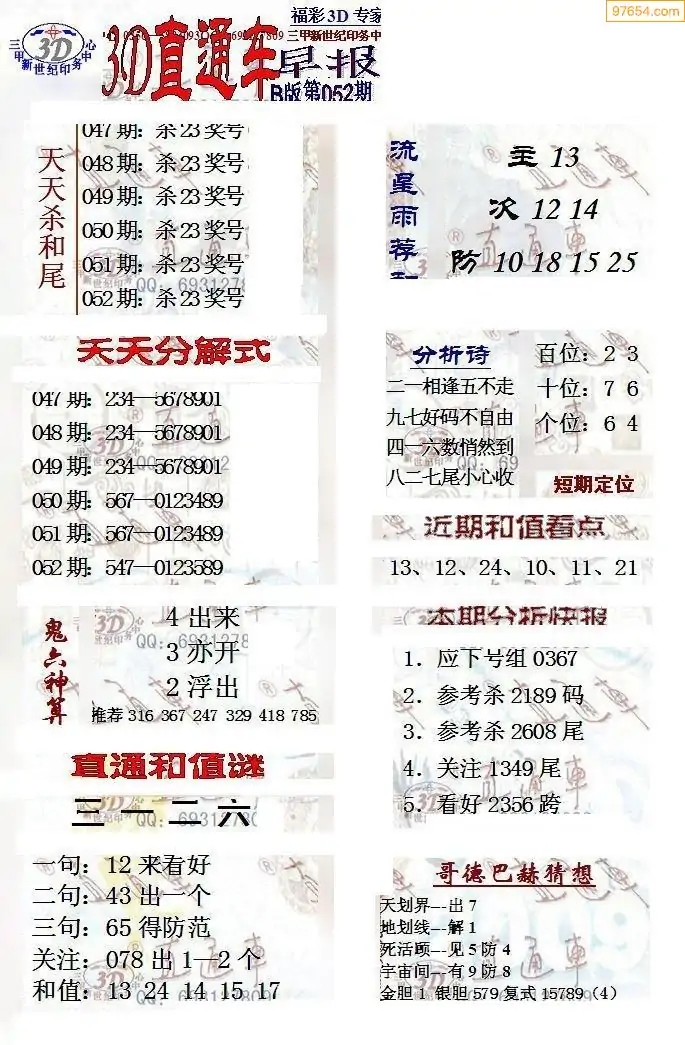 97654.com
福彩3D 专家
三甲新世纪印务中心
3D
3D直通车
三甲新世纪印务中
早报
B版第052期
天天杀和尾
047 期: 杀 23 奖号
048 期: 杀 23 奖号
049 期: 杀 23 奖号
050 期: 杀 23 奖号
051 期: 杀 23 奖号
052 期: 杀 23 奖号
流星雨荐
主 13
次 12 14
防 10 18 15 25
天天分解式
047 期: 234—5678901
048 期: 234—5678901
049 期: 234—5678901
050 期: 567—0123489
051 期: 567—0123489
052 期: 547—0123589
分析诗
二一相逢五不走
九七好码不自由
四一六数悄然到
八二七尾小心收
百位: 2 3
十位: 7 6
个位: 6 4
短期定位
近期和值看点
13、12、24、10、11、21
鬼六神算
4 出来
3 亦开
2 浮出
推荐 316 367 247 329 418 785
本期分析快报
1. 应下号组 0367
2. 参考杀 2189 码
3. 参考杀 2608 尾
4. 关注 1349 尾
5. 看好 2356 跨
直通和值谜
三 一 二 六
一句: 12 来看好
二句: 43 出一个
三句: 65 得防范
关注: 078 出 1—2 个
和值: 13 24 14 15 17
哥德巴赫猜想
天划界---出 7
地划线---解 1
死活顾---见 5 防 4
宇宙间---有 9 防 8
金胆 1 银胆 579 复式 15789（4）